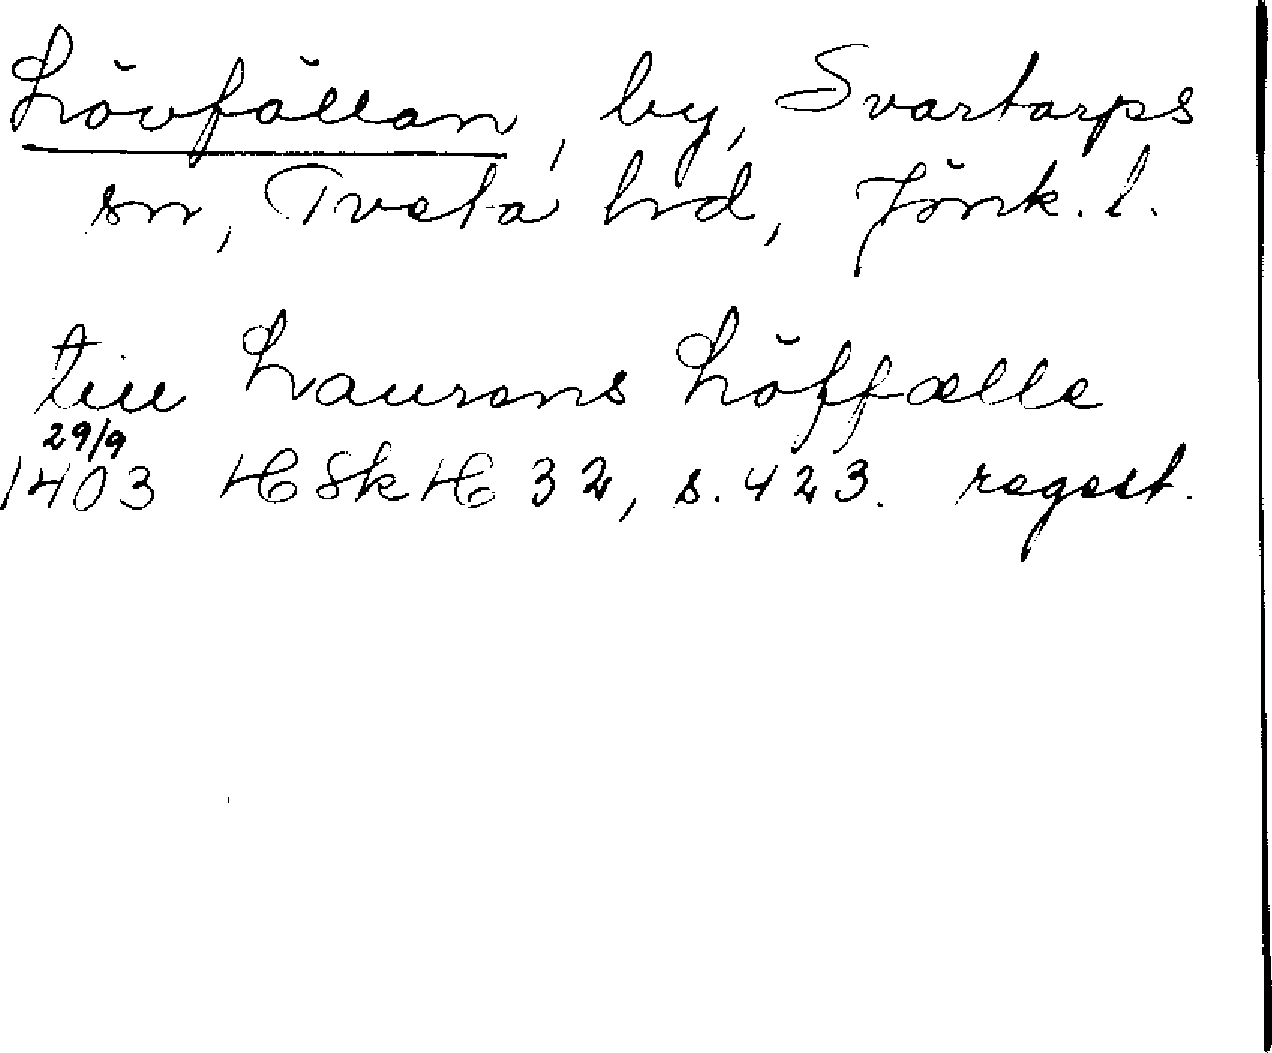 Lövfällan, by, Svartarps
sn, Tveta hd, Jönk. l.
till Laurens Löffælle
29/9
1403 HSkH 32, s. 423. regest.